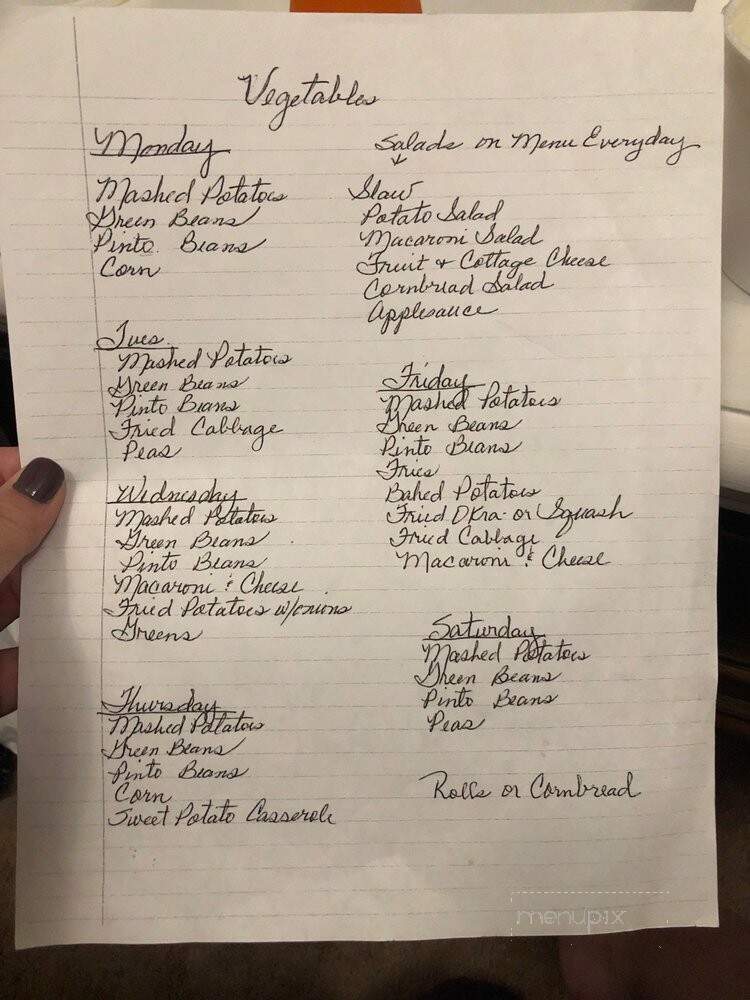 Vegetables
Monday
Mashed Potatoes
Green Beans
Pinto Beans
Corn
Salads on Menu Everyday
Slaw
Potato Salad
Macaroni Salad
Fruit + Cottage Cheese
Cornbread Salad
Applesauce
Tues.
Mashed Potatoes
Green Beans
Pinto Beans
Fried Cabbage
Peas
Wednesday
Mashed Potatoes
Green Beans
Pinto Beans
Macaroni & Cheese
Fried Potatoes w/onions
Greens
Thursday
Mashed Potatoes
Green Beans
Pinto Beans
Corn
Sweet Potato Casserole
Friday
Mashed Potatoes
Green Beans
Pinto Beans
Fries
Baked Potatoes
Fried Okra or Squash
Fried Cabbage
Macaroni & Cheese
Saturday
Mashed Potatoes
Green Beans
Pinto Beans
Peas
Rolls or Cornbread
menupix